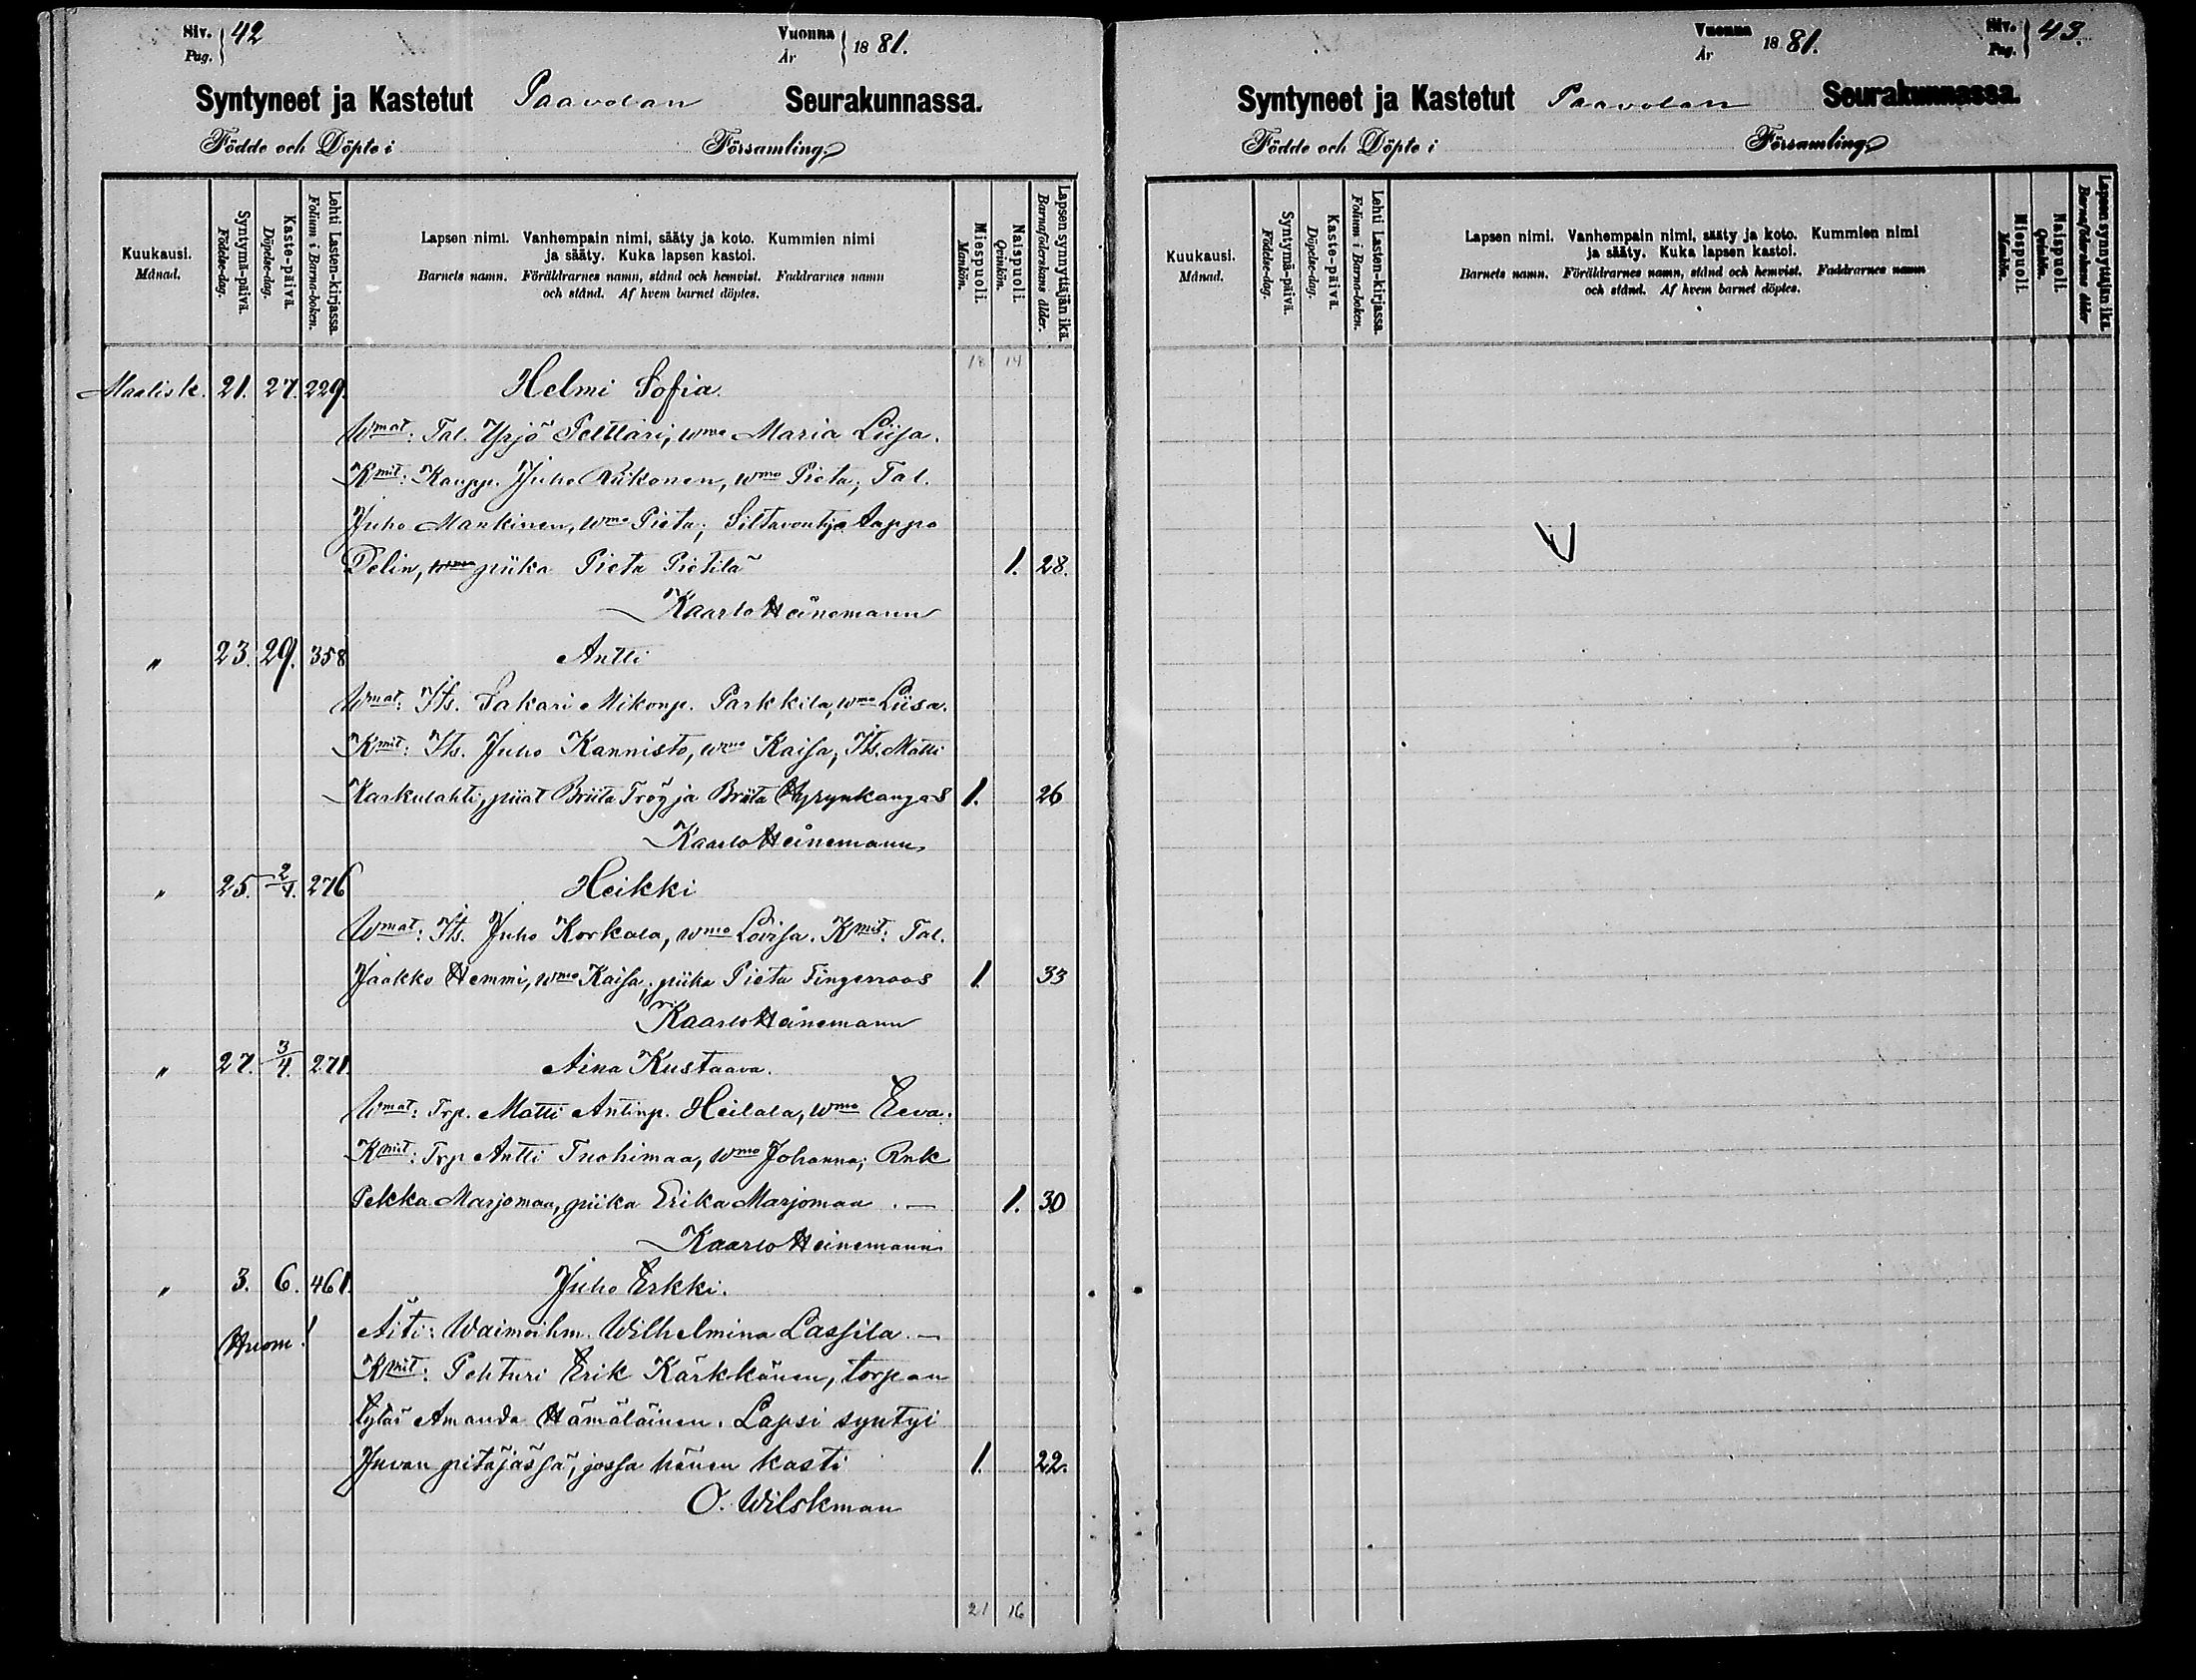 Siv. Pag. 42
Vuonna År 1881.
Syntyneet ja Kastetut Paavolan Seurakunnassa.
Födde och Döpte i Församling.
Kuukausi. Månad.
Syntymä-päivä. Födelse-dag.
Kaste-päivä. Döpelse-dag.
Lehti Lasten-kirjassa. Folium i Barna-boken.
Lapsen nimi. Vanhempain nimi, sääty ja koto. Kummien nimi
ja sääty. Kuka lapsen kastoi.
Barnets namn. Föräldrarnes namn, stånd och hemvist. Faddrarnes namn
och stånd. Af hvem barnet döptes.
Miespuoli. Mankön.
Naispuoli. Qvinkön.
Lapsen synnyttäjän ikä. Barnaföderskans ålder.
18 14
Maalisk. 21. 27. 229. Helmi Sofia.
Wmat: Tal. Yrjö Pelttari, wmo Maria Liisa.
Kmit: Kaupp. Juho Riikonen, wmo Pieta; Tal.
Juho Mankinen, wmo Pieta; Siltavoutja Aappo
Delin, wmo piika Pieta Pietilä 1. 28.
Kaarlo Heinemann
" 23. 29. 358 Antti
Wmat: Its. Sakari Mikonp. Parkkila, wmo Liisa.
Kmit: Its. Juho Kannisto, wmo Kaisa; Its. Matti
Karkulahti, piiat Briita Trög ja Briita Hyrynkangas 1. 26
Kaarlo Heinemann,
" 25. 2/4. 276 Heikki
Wmat: Its. Juho Korkala, wmo Lovisa. Kmit: Tal.
Jaakko Hemmi, wmo Kaisa; piika Pieta Tingerroos 1. 33
Kaarlo Heinemann
" 27. 3/4. 271. Aina Kustaava.
Wmat: Trp. Matti Antinp. Heilala, wmo Eeva.
Kmit: Trp Antti Tuohimaa, wmo Johanna; Rnk
Pekka Marjomaa, piika Erika Marjomaa. — 1. 30
Kaarlo Heinemann
" 3. 6. 461. Juho Erkki.
Huom! Äiti: Waimoihm. Wilhelmina Lassila. —
Kmit: Pehturi Erik Kärkkänen, torpan
tytär Amanda Hämäläinen. Lapsi syntyi
Juvan pitäjässä, jossa hänen kasti 1. 22.
O. Wilskman
21 16
Vuonna År 1881.
Siv. Pag. 43.
Syntyneet ja Kastetut Paavolan Seurakunnassa.
Födde och Döpte i Församling
Kuukausi. Månad.
Syntymä-päivä. Födelse-dag.
Kaste-päivä. Döpelse-dag.
Lehti Lasten-kirjassa. Folium i Barna-boken.
Lapsen nimi. Vanhempain nimi, sääty ja koto. Kummien nimi
ja sääty. Kuka lapsen kastoi.
Barnets namn. Föräldrarnes namn, stånd och hemvist. Faddrarnes namn
och stånd. Af hvem barnet döptes.
Miespuoli. Mankön.
Naispuoli. Qvinkön.
Lapsen synnyttäjän ikä. Barnaföderskans ålder